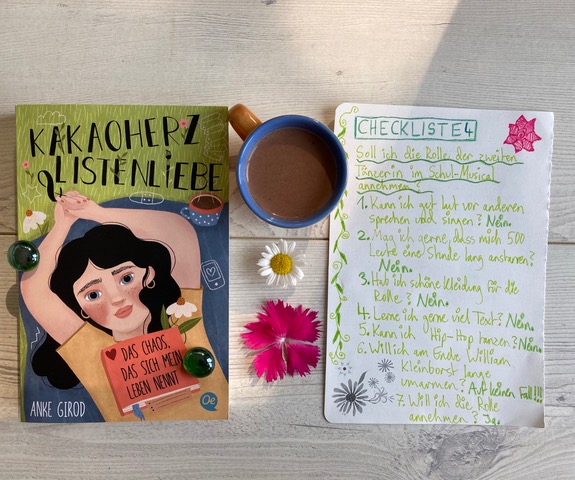 KAKAOHERZ
& LISTENLIEBE
DAS CHAOS,
DAS SICH MEIN
LEBEN NENNT
ANKE GIROD
Oe
CHECKLISTE 4
Soll ich die Rolle der zweiten
Tänzerin im Schul-Musical
annehmen?
1. Kann ich gut laut vor anderen
sprechen und singen? Nein.
2. Mag ich gerne, dass mich 500
Leute eine Stunde lang anstarren?
Nein.
3. Hab ich schöne Kleidung für die
Rolle? Nein.
4. Lerne ich gerne viel Text? Nein.
5. Kann ich Hip-Hop tanzen? Nein.
6. Will ich am Ende William
Kleinborst lange
umarmen? Auf keinen Fall!!!
7. Will ich die Rolle
annehmen? Ja.